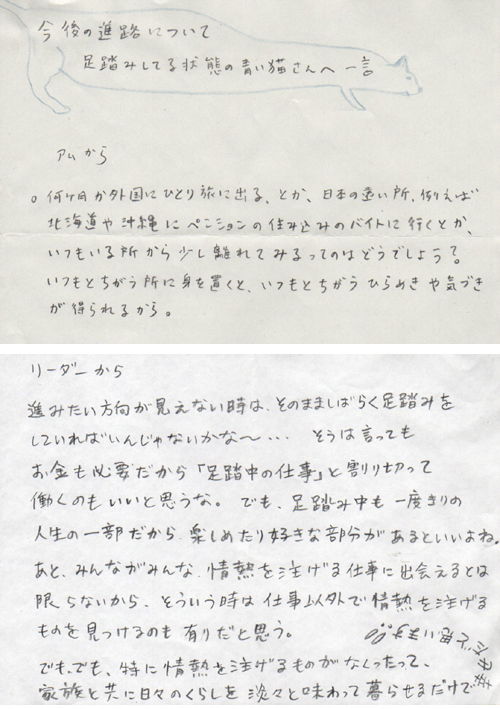 今後の進路について
足踏みしてる状態の青い猫さんへ一言
アムから
○ 何ヶ月か外国にひとり旅に出る、とか、日本の遠い所、例えば
北海道や沖縄にペンションの住み込みのバイトに行くとか、
いつもいる所から少し離れてみるってのはどうでしょう?
いつもとちがう所に身を置くと、いつもとちがうひらめきや気づき
が得られるから。
リーダーから
進みたい方向が見えない時は、そのまましばらく足踏みを
していればいんじゃないかな〜... そうは言っても
お金も必要だから「足踏中の仕事」と割り切って
働くのもいいと思うな。でも、足踏み中も一度きりの
人生の一部だから、楽しめたり好きな部分があるといいよね。
あと、みんながみんな、情熱を注げる仕事に出会えるとは
限らないから、そういう時は仕事以外で情熱を注げる
ものを見つけるのも有りだと思う。
でも、でも、特に情熱を注げるものがなくったって、
家族と共に日々のくらしを淡々と味わって暮らせるだけで